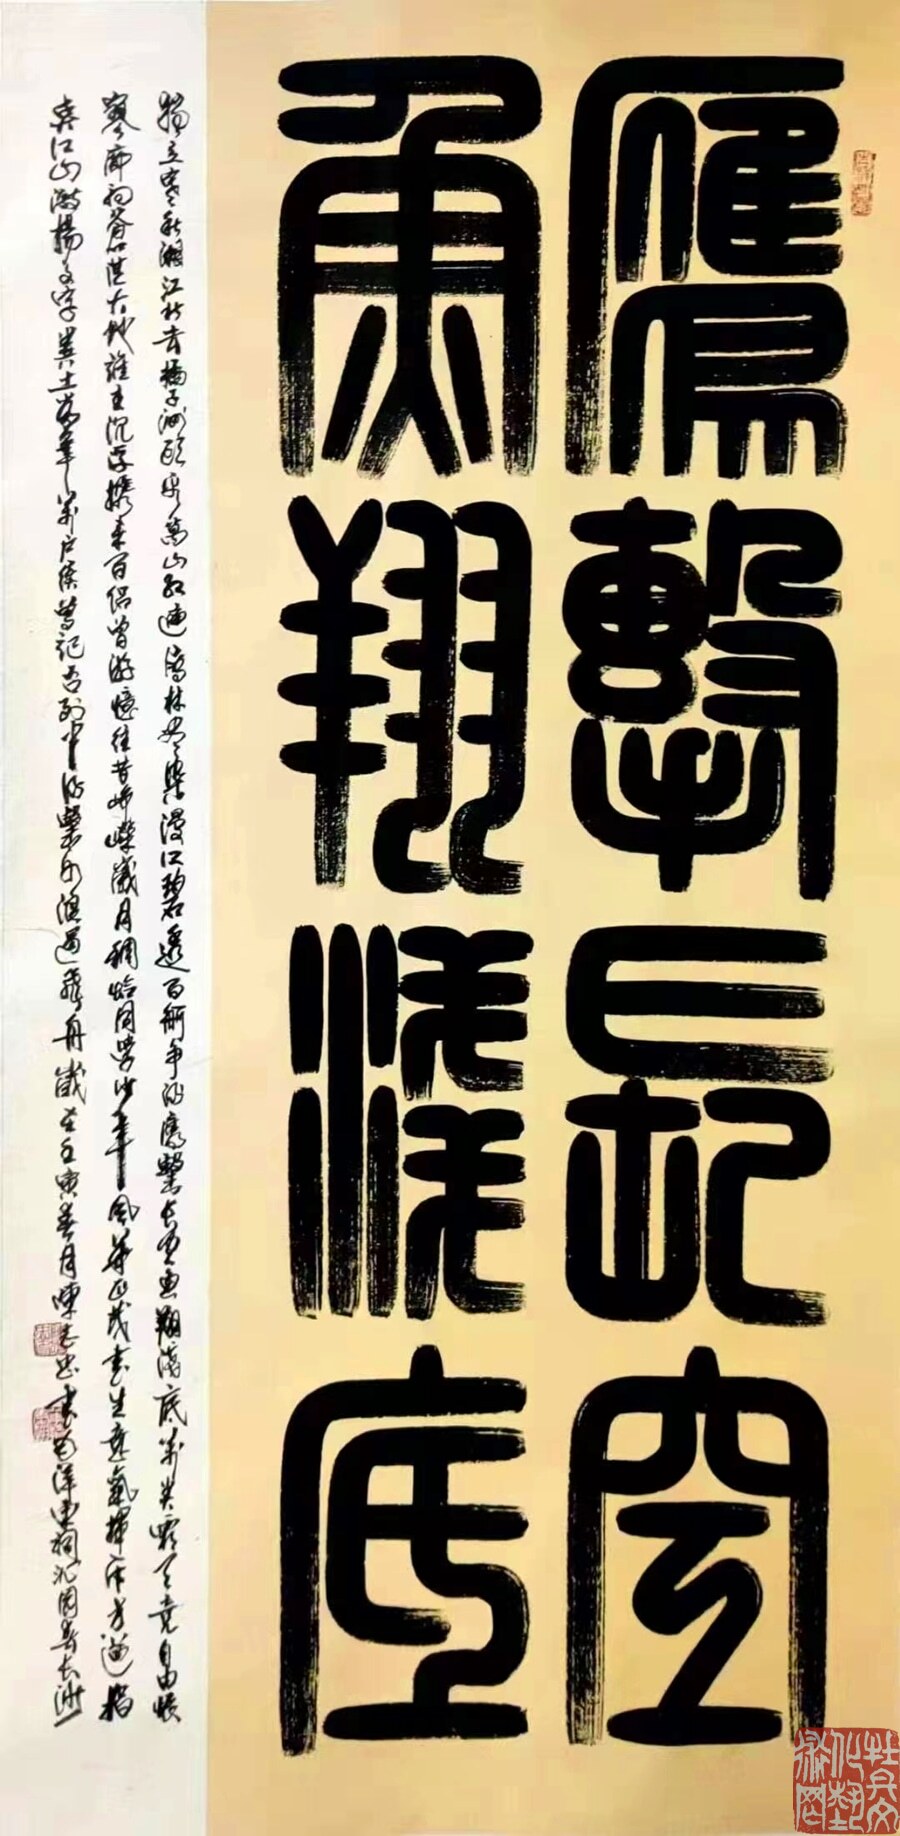 鷹擊長空
魚翔淺底
獨立寒秋湘江北去橘子洲頭看萬山紅遍層林盡染漫江碧透百舸争流鷹擊長空魚翔淺底萬类霜天竞自由悵
寥廓问苍茫大地誰主沉浮携来百侣曾游憶往昔峥嵘歲月稠恰同學少年風華正茂書生意氣揮斥方遒指
点江山激揚文字糞土當年萬户侯曾記否到中流擊水浪遏飛舟歲在壬寅春月陳志忠書毛澤東詞沁園春長沙